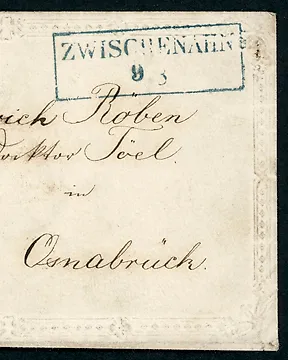 ZWISCHENAHN
9 3
rich Röben
Doktor Töel.
in
Osnabrück.